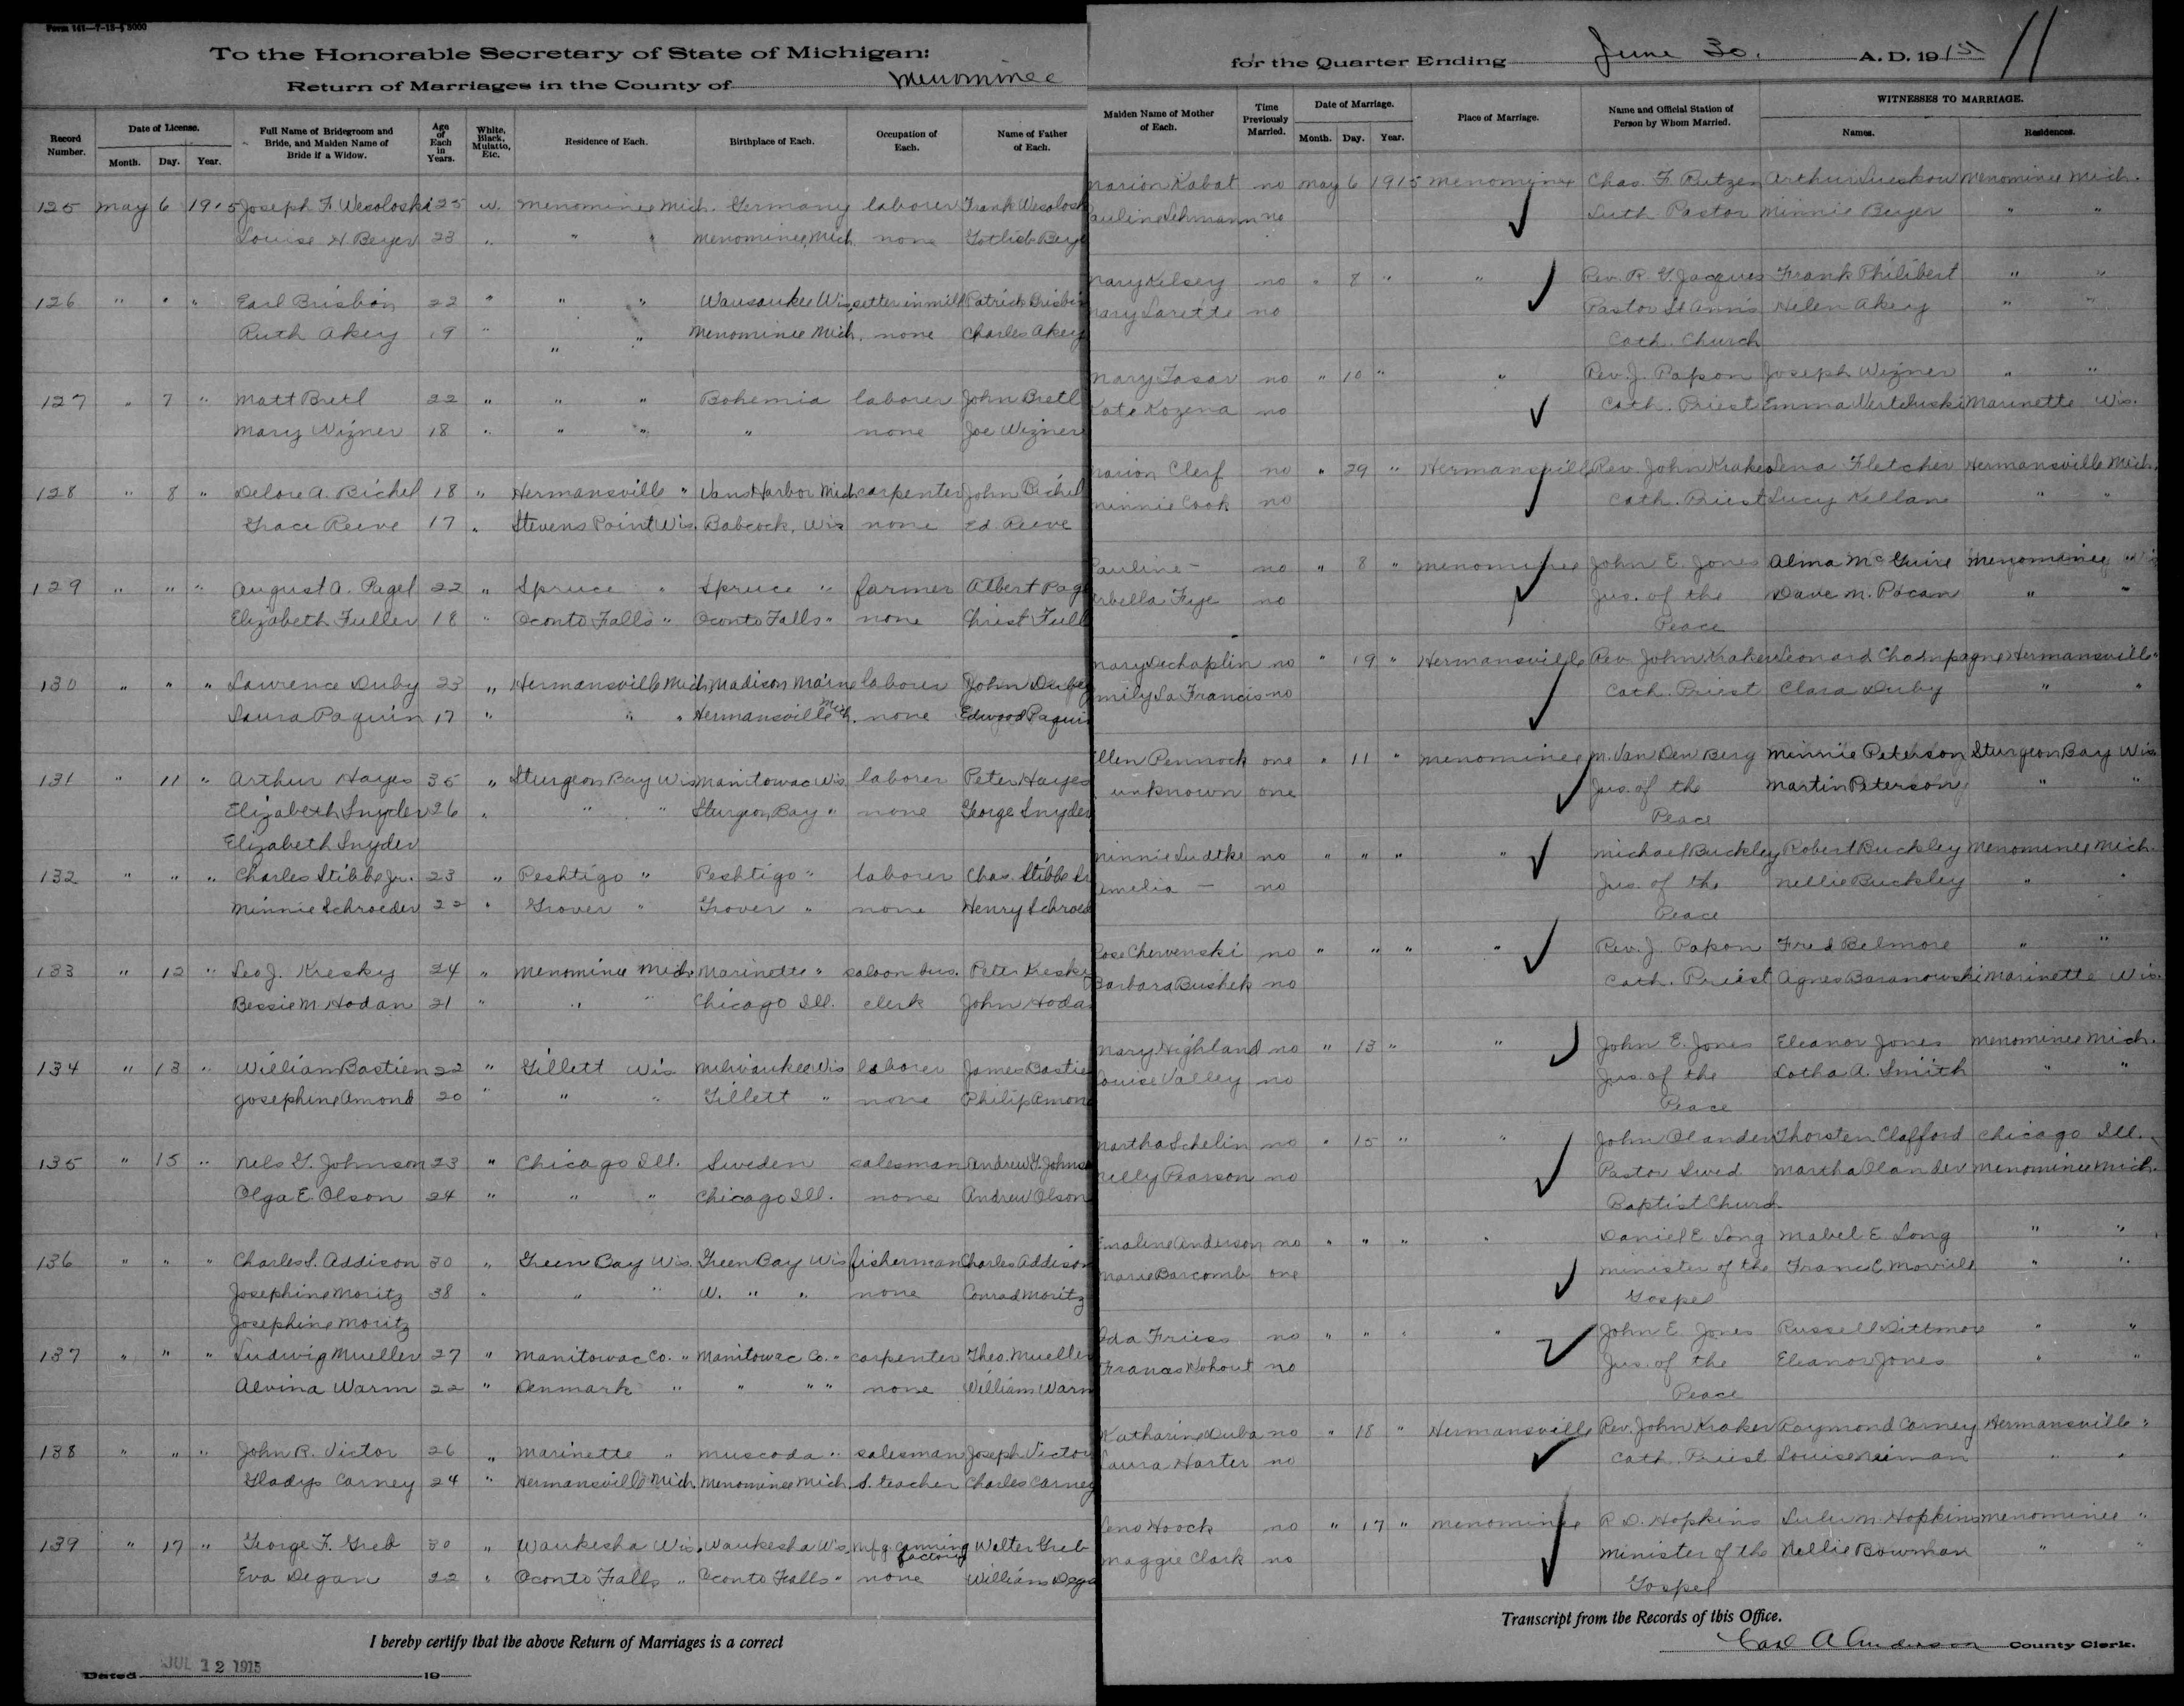 Form 141—7-13-3000
To the Honorable Secretary of State of Michigan:
Return of Marriages in the County of Menominee
for the Quarter Ending June 30. A. D. 1915 11
Record Number. Date of License. Month. Day. Year. Full Name of Bridegroom and Bride, and Maiden Name of Bride if a Widow. Age of Each in Years. White, Black, Mulatto, Etc. Residence of Each. Birthplace of Each. Occupation of Each. Name of Father of Each.
Maiden Name of Mother of Each. Time Previously Married. Date of Marriage. Month. Day. Year. Place of Marriage. Name and Official Station of Person by Whom Married. WITNESSES TO MARRIAGE. Names. Residences.
125 May 6 1915 Joseph F. Wesoloski 25 W. Menominee Mich. Germany laborer Frank Wesolosk
Louise H Beyer 23 " " " Menominee, Mich. none Gotlieb Beye
Marion Kabat no May 6 1915 Menominee Chas. F. Rutzen Arthur Lueskow Menominee Mich.
Pauline Lehmann no Luth Pastor Minnie Beyer " "
126 " " " Earl Brisbin 22 " " " Wausaukee Wis. setter in mill Patrick Brisbin
Ruth Akey 19 " " " Menominee Mich. none Charles Akey
Mary Kelsey no " 8 " " Rev. R. G. Jacques Frank Philibert " "
Mary Larette no Pastor St Ann's Helen Akey " "
Cath. Church
127 " 7 " Matt Bretl 22 " " " Bohemia laborer John Bretl
Mary Wizner 18 " " " " none Joe Wizner
Mary Tasar no " 10 " " Rev. J. Papon Joseph Wizner " "
Kate Kozena no Cath. Priest Emma Marinette Wis.
128 " 8 " Delore A. Bichel 18 " Hermansville " Vans Harbor Mich. carpenter John Bichel
Grace Reeve 17 " Stevens Point Wis. Babcock, Wis none Ed. Reeve
Marion Clerf no " 29 " Hermansville Rev. John Kraker Lena Fletcher Hermansville Mich.
Minnie Cook no Cath. Priest Lucy Kellane " "
129 " " " August A. Pagel 22 " Spruce " Spruce " farmer Albert Pag
Elizabeth Fuller 18 " Oconto Falls " Oconto Falls " none Christ Full
Pauline — no " 8 " Menominee John E. Jones Alma McGuire Menominee "
rbella Frye no Jus. of the Dave M. Pocan " "
Peace
130 " " " Lawrence Duby 23 " Hermansville Mich. Madison Maine laborer John Duby
Laura Paquin 17 " " " Hermansville Mich. none Edward Paquin
Mary Dechaplin no " 19 " Hermansville Rev. John Kraker Leonard Champagne Hermansville "
mily La Francis no Cath. Priest Clara Duby " "
131 " 11 " Arthur Hayes 35 " Sturgeon Bay Wis Manitowac Wis laborer Peter Hayes
Elizabeth Snyder 26 " " " Sturgeon Bay " none George Snyder
Elizabeth Snyder
llen Pennock one " 11 " Menominee M. Van Den Berg Minnie Peterson Sturgeon Bay Wis
unknown one Jus. of the Martin Peterson " "
Peace
132 " " " Charles Stibbe Jr. 23 " Peshtigo " Peshtigo " laborer Chas. Stibbe Sr
Minnie Schroeder 22 " Grover " Grover " none Henry Schroed
Minnie Ludtke no " " " " Michael Buckley Robert Buckley Menominee Mich.
emelia — no Jus. of the Nellie Buckley " "
Peace
133 " 12 " Leo J. Kresky 24 " Menominee Mich. Marinette " saloon bus. Peter Kesky
Bessie M Hodan 21 " " " Chicago Ill. clerk John Hoda
Rose Chervenski no " " " " Rev. J. Papon Fred Belmore " "
Barbara Bushek no Cath. Priest Agnes Baranowski Marinette Wis.
134 " 13 " William Bastien 22 " Gillett Wis Milwaukee Wis laborer James Bastie
Josephine Amond 20 " " " Gillett " none Philip Amon
Mary Highland no " 13 " " John E. Jones Eleanor Jones Menominee Mich.
Louise Valley no Jus. of the Lotha A. Smith " "
Peace
135 " 15 " Nels G. Johnson 23 " Chicago Ill. Sweden salesman Andrew G. Johns
Olga E. Olson 24 " " " Chicago Ill. none Andrew Olson
Martha Schelin no " 15 " " John Olander Thorsten Clafford Chicago Ill.
Nelly Pearson no Pastor Swed Martha Olander Menominee Mich.
Baptist Church
136 " " " Charles S. Addison 30 " Green Bay Wis. Green Bay Wis fisherman Charles Addison
Josephine Moritz 38 " " " W. " " none Conrad Moritz
Josephine Moritz
Emaline Anderson no " " " " Daniel E. Long Mabel E. Long " "
Marie Barcomb one minister of the " "
Gospel
137 " " " Ludwig Mueller 27 " Manitowac Co. " Manitowac Co. " carpenter Theo. Mueller
Alvina Warm 22 " Denmark " " " " none William Warm
Ida Friess no " " " " John E. Jones Russell Dittmore " "
Frances Kohout no Jus. of the Eleanor Jones " "
Peace
138 " " " John R. Victor 26 " Marinette " Muscoda " salesman Joseph Victor
Gladys Carney 24 " Hermansville Mich. Menominee Mich. S. teacher Charles Carney
Katharine Duba no " 18 " Hermansville Rev. John Kraker Raymond Carney Hermansville "
Laura Harter no Cath. Priest Louise Neiman " "
139 " 17 " George F. Greb 30 " Waukesha Wis. Waukesha Wis. mfg. canning factory Walter Greb
Eva Degan 22 " Oconto Falls " Oconto Falls " none William Dega
Lena Hoock no " 17 " Menominee R. D. Hopkins Lulu M. Hopkins Menominee "
Maggie Clark no Minister of the Nellie Bowman " "
Gospel
I hereby certify that the above Return of Marriages is a correct
Transcript from the Records of this Office.
Dated JUL 12 1915 19
Carl A Anderson County Clerk.